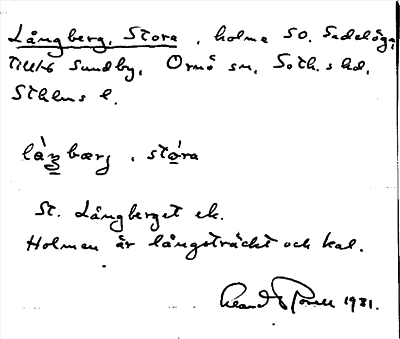 Långberg, Stora, holme SO. Sadelöga,
till Sundby, Ornö sn, Soth.s hd,
Sthlms l.
làŋbærj, stóra
St. Långberget ek.
Holmen är långsträckt och kal.
1931.